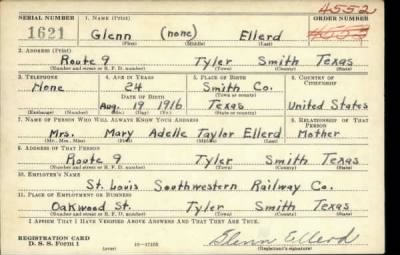 SERIAL NUMBER 1. NAME (Print) ORDER NUMBER
4552
1621 Glenn (none) Ellerd
(First) (Middle) (Last)
2. ADDRESS (Print)
Route 9 Tyler Smith Texas
(Number and street or R. F. D. number) (Town) (County) (State)
3. TELEPHONE 4. AGE IN YEARS 5. PLACE OF BIRTH 6. COUNTRY OF CITIZENSHIP
None 24 Smith Co.
DATE OF BIRTH (Town or county)
Aug. 19 1916 Texas United States
(Exchange) (Number) (Mo.) (Day) (Yr.) (State or country)
7. NAME OF PERSON WHO WILL ALWAYS KNOW YOUR ADDRESS 8. RELATIONSHIP OF THAT PERSON
Mrs. Mary Adelle Taylor Ellerd Mother
(Mr., Mrs., Miss) (First) (Middle) (Last)
9. ADDRESS OF THAT PERSON
Route 9 Tyler Smith Texas
(Number and street or R. F. D. number) (Town) (County) (State)
10. EMPLOYER'S NAME
St. Louis Southwestern Railway Co.
11. PLACE OF EMPLOYMENT OR BUSINESS
Oakwood St. Tyler Smith Texas
(Number and street or R. F. D. number) (Town) (County) (State)
I AFFIRM THAT I HAVE VERIFIED ABOVE ANSWERS AND THAT THEY ARE TRUE.
REGISTRATION CARD
D. S. S. Form 1 (over) Glenn Ellerd
(Registrant's signature)